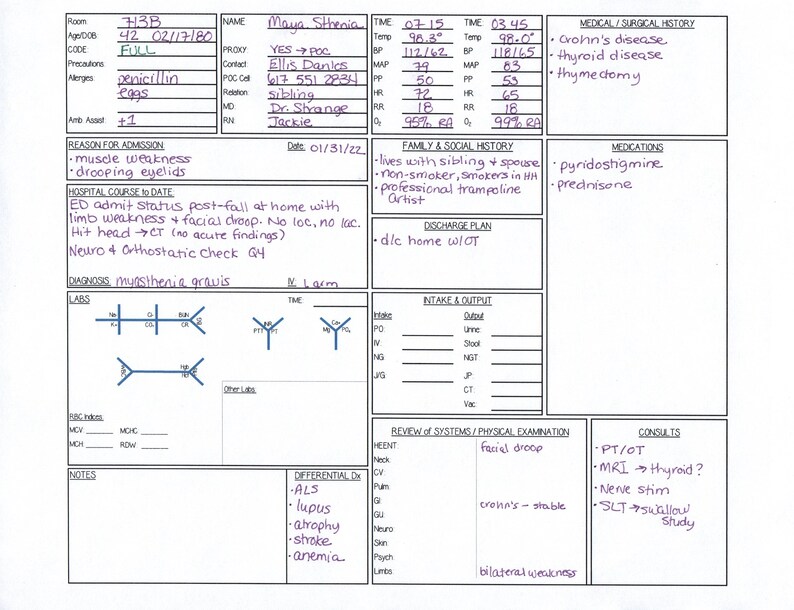 Room: 713B
Age/DOB: 42 02/17/80
CODE: FULL
Precautions:
Allergies: penicillin
eggs
Amb Assist: +1
NAME Maya Sthenia
PROXY: YES → POC
Contact: Ellis Danlos
POC Cell 617 551 2834
Relation: sibling
MD: Dr. Strange
RN: Jackie
TIME: 07 15 TIME: 03 45
Temp 98.3° Temp 98.0°
BP 112/62 BP 118/65
MAP 79 MAP 83
PP 50 PP 53
HR 72 HR 65
RR 18 RR 18
O₂ 95% RA O₂ 99% RA
MEDICAL / SURGICAL HISTORY
• crohn's disease
• thyroid disease
• thymectomy
REASON FOR ADMISSION: Date: 01/31/22
• muscle weakness
• drooping eyelids
HOSPITAL COURSE to DATE:
ED admit status post-fall at home with
limb weakness & facial droop. No loc, no lac.
Hit head → CT (no acute findings)
Neuro & Orthostatic Check Q4
DIAGNOSIS: myasthenia gravis IV: L arm
FAMILY & SOCIAL HISTORY
• lives with sibling & spouse
• non-smoker, smokers in HH
• professional trampoline
artist
DISCHARGE PLAN
• d/c home w/OT
MEDICATIONS
• pyridostigmine
• prednisone
LABS TIME:
Na+ Cl- BUN
K+ CO₂ CR BG
INR
PTT PT
Ca++
Mg PO₄
WBC Hgb
Hct Plt
Other Labs:
RBC Indices:
MCV MCHC
MCH RDW
INTAKE & OUTPUT
Intake Output
PO: Urine:
IV: Stool:
NG: NGT:
J/G: JP:
CT:
Vac:
NOTES
DIFFERENTIAL Dx
• ALS
• lupus
• atrophy
• stroke
• anemia
REVIEW of SYSTEMS / PHYSICAL EXAMINATION
HEENT: facial droop
Neck:
CV:
Pulm:
GI: crohn's - stable
GU:
Neuro:
Skin:
Psych:
Limbs: bilateral weakness
CONSULTS
• PT/OT
• MRI → thyroid?
• Nerve stim
• SLT → swallow
study